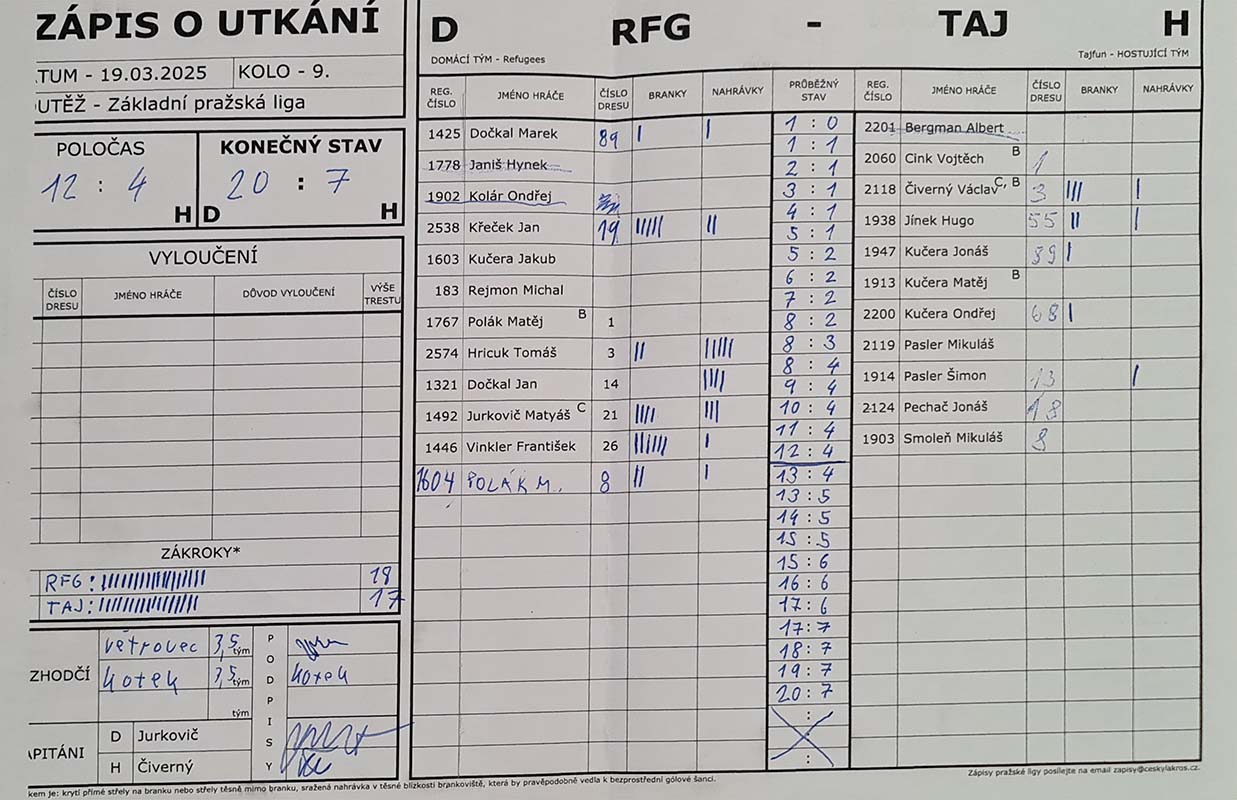 ZÁPIS O UTKÁNÍ
TUM - 19.03.2025 KOLO - 9.
OUTĚŽ - Základní pražská liga
POLOČAS
12 : 4
H
KONEČNÝ STAV
20 : 7
D H
VYLOUČENÍ
ČÍSLO DRESU JMÉNO HRÁČE DŮVOD VYLOUČENÍ VÝŠE TRESTU
ZÁKROKY*
RFG : 18
TAJ : 17
ZHODČÍ
větrovec 3,5 tým
kotek 3,5 tým
tým
PODPISY
kotek
APITÁNI
D Jurkovič
H Čiverný
D RFG - TAJ H
DOMÁCÍ TÝM - Refugees Tajfun - HOSTUJÍCÍ TÝM
REG. ČÍSLO JMÉNO HRÁČE ČÍSLO DRESU BRANKY NAHRÁVKY PRŮBĚŽNÝ STAV REG. ČÍSLO JMÉNO HRÁČE ČÍSLO DRESU BRANKY NAHRÁVKY
1425 Dočkal Marek 89 | |
1778 Janiš Hynek
1902 Kolár Ondřej
2538 Křeček Jan 19 ||||| ||
1603 Kučera Jakub
183 Rejmon Michal
1767 Polák Matěj B 1
2574 Hricuk Tomáš 3 || |||||
1321 Dočkal Jan 14 ||||
1492 Jurkovič Matyáš C 21 |||| |||
1446 Vinkler František 26 |||||| |
1604 POLÁK M. 8 || |
1 : 0
1 : 1
2 : 1
3 : 1
4 : 1
5 : 1
5 : 2
6 : 2
7 : 2
8 : 2
8 : 3
8 : 4
9 : 4
10 : 4
11 : 4
12 : 4
13 : 4
13 : 5
14 : 5
15 : 5
15 : 6
16 : 6
17 : 6
17 : 7
18 : 7
19 : 7
20 : 7
:
:
2201 Bergman Albert
2060 Cink Vojtěch B 1
2118 Čiverný Václav C, B 3 ||| |
1938 Jínek Hugo 55 || |
1947 Kučera Jonáš 39 |
1913 Kučera Matěj B
2200 Kučera Ondřej 68 |
2119 Pasler Mikuláš
1914 Pasler Šimon 13 |
2124 Pechač Jonáš 18
1903 Smoleň Mikuláš 8
kem je: krytí přímé střely na branku nebo střely těsně mimo branku, sražená nahrávka v těsné blízkosti brankoviště, která by pravěpodobně vedla k bezprostřední gólové šanci.
Zápisy pražské ligy posílejte na email zapisy@ceskylakros.cz.